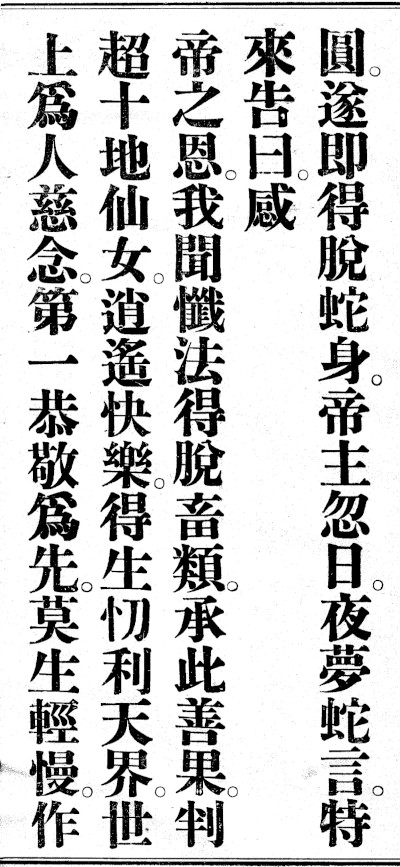 圓。遂即得脫蛇身。帝主忽日。夜夢蛇言。特
來告曰。感
帝之恩。我聞懺法得脫畜類。承此善果。判
超十地仙女。逍遙快樂。得生忉利天界。世
上爲人慈念。第一恭敬爲先。莫生輕慢。作